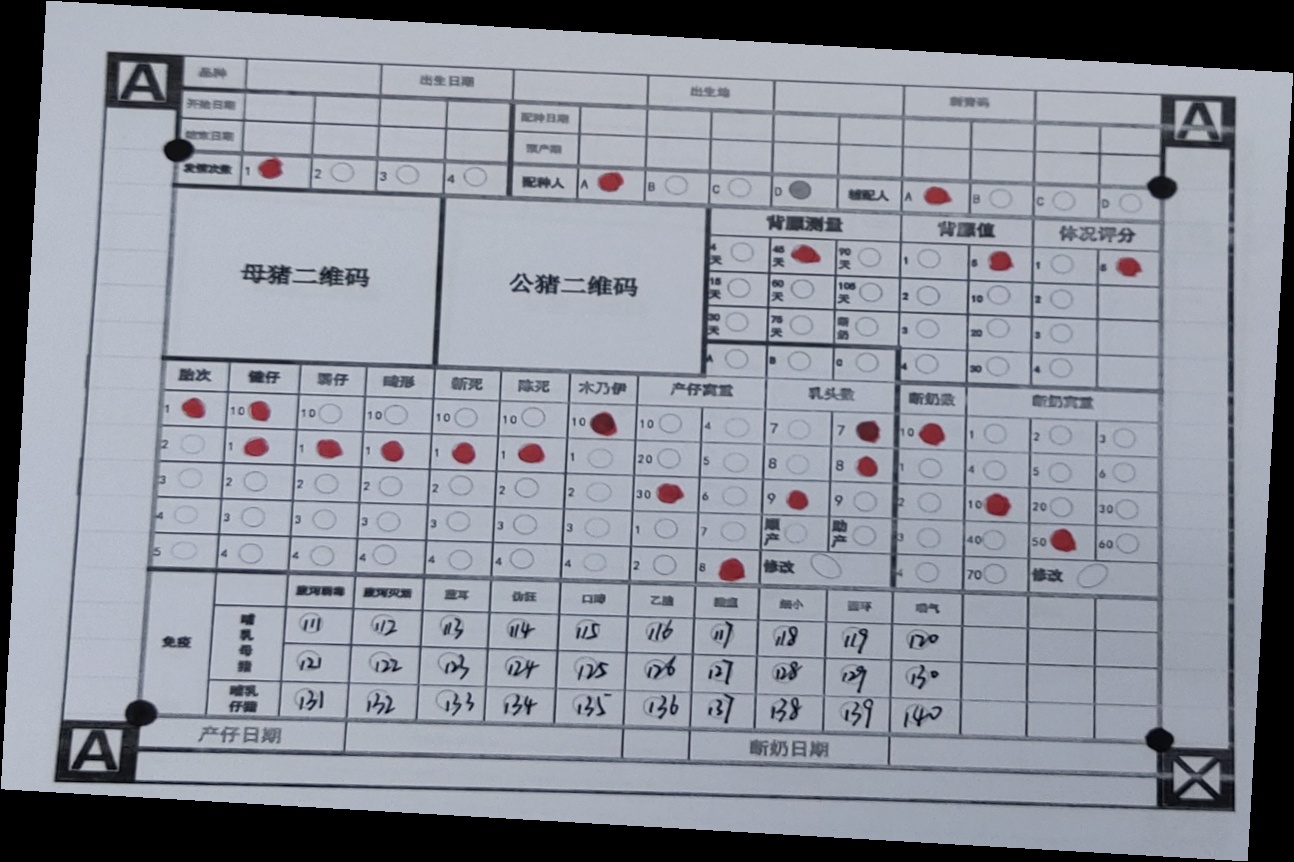 A
品种 出生日期 出生地
A
开始日期 配种日期
结束日期 预产期
发情次数 1 2 3 4 配种人 A B C D 辅配人 A B C D
母猪二维码 公猪二维码
背膘测量 背膘值 体况评分
4天 45天 90天 1 5 1 5
15天 60天 105天 2 10 2
30天 75天 断奶 3 20 3
A B C 4 30 4
胎次 健仔 弱仔 畸形 新死 陈死 木乃伊 产仔窝重 乳头数 断奶数 断奶窝重
1 10 10 10 10 10 10 10 4 7 7 10 1 2 3
2 1 1 1 1 1 1 20 5 8 8 1 4 5 6
3 2 2 2 2 2 2 30 6 9 9 2 10 20 30
4 3 3 3 3 3 3 1 7 顺产 助产 3 40 50 60
5 4 4 4 4 4 4 2 8 修改 4 70 修改
免疫
蓝耳 伪狂 口蹄 乙脑 细小 圆环 喘气
哺乳母猪 111 112 113 114 115 116 117 118 119 120
121 122 123 124 125 126 127 128 129 130
哺乳仔猪 131 132 133 134 135 136 137 138 139 140
A
产仔日期 断奶日期